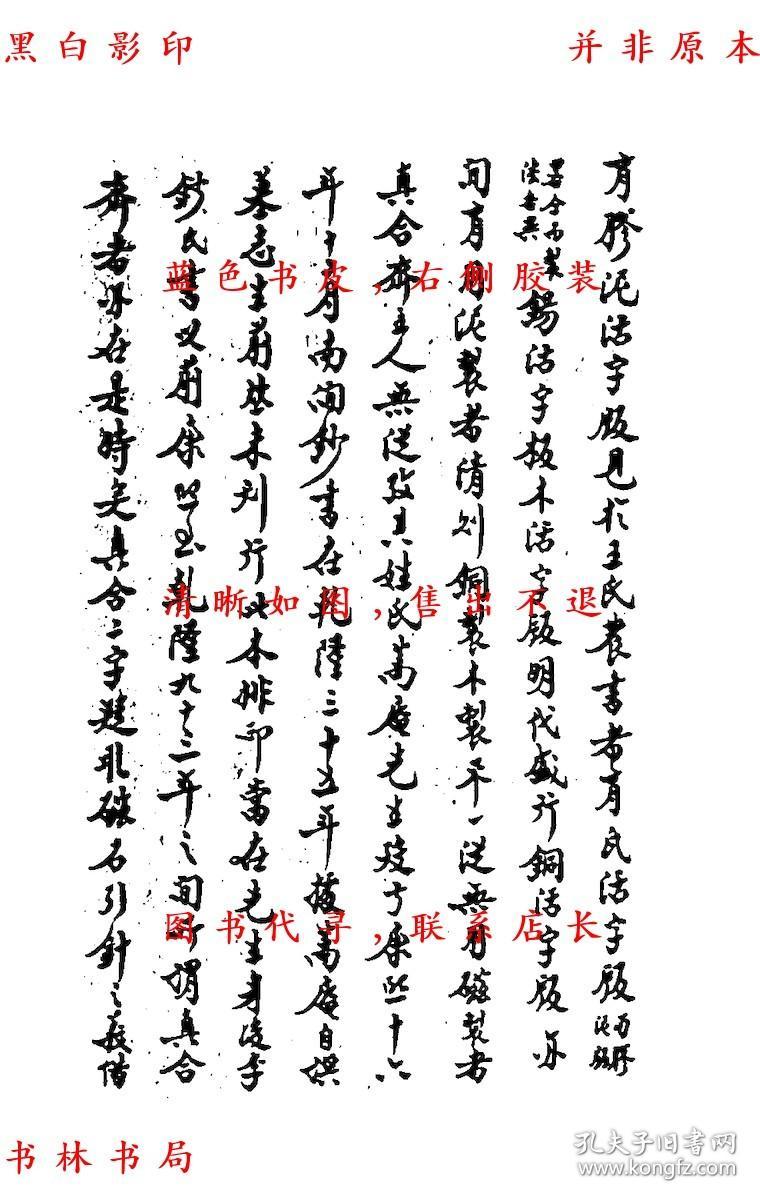 黑白影印
并非原本
有膠泥活字版見於王氏農書者有瓦活字版
間有用泥製者清則銅製木製不一從無用磁製者
錫活字板木活字版明代盛行銅活字版亦
真合齋主人無從攷其姓氏蒿庵先生歿于康熙十六
年十月南澗鈔書在乾隆三十五年據蒿庵自譔
墓志生前並未刊行此本排印當在先生身後李
鈔氏書以前康熙至乾隆九十三年之間所謂真合
齋者亦在是時矣真合二字題取磁石引針之義借
蓝色书皮,右侧胶装
清晰如图,售出不退
图书代寻,联系店长
书林书局
孔夫子旧书网
www.kongfz.com